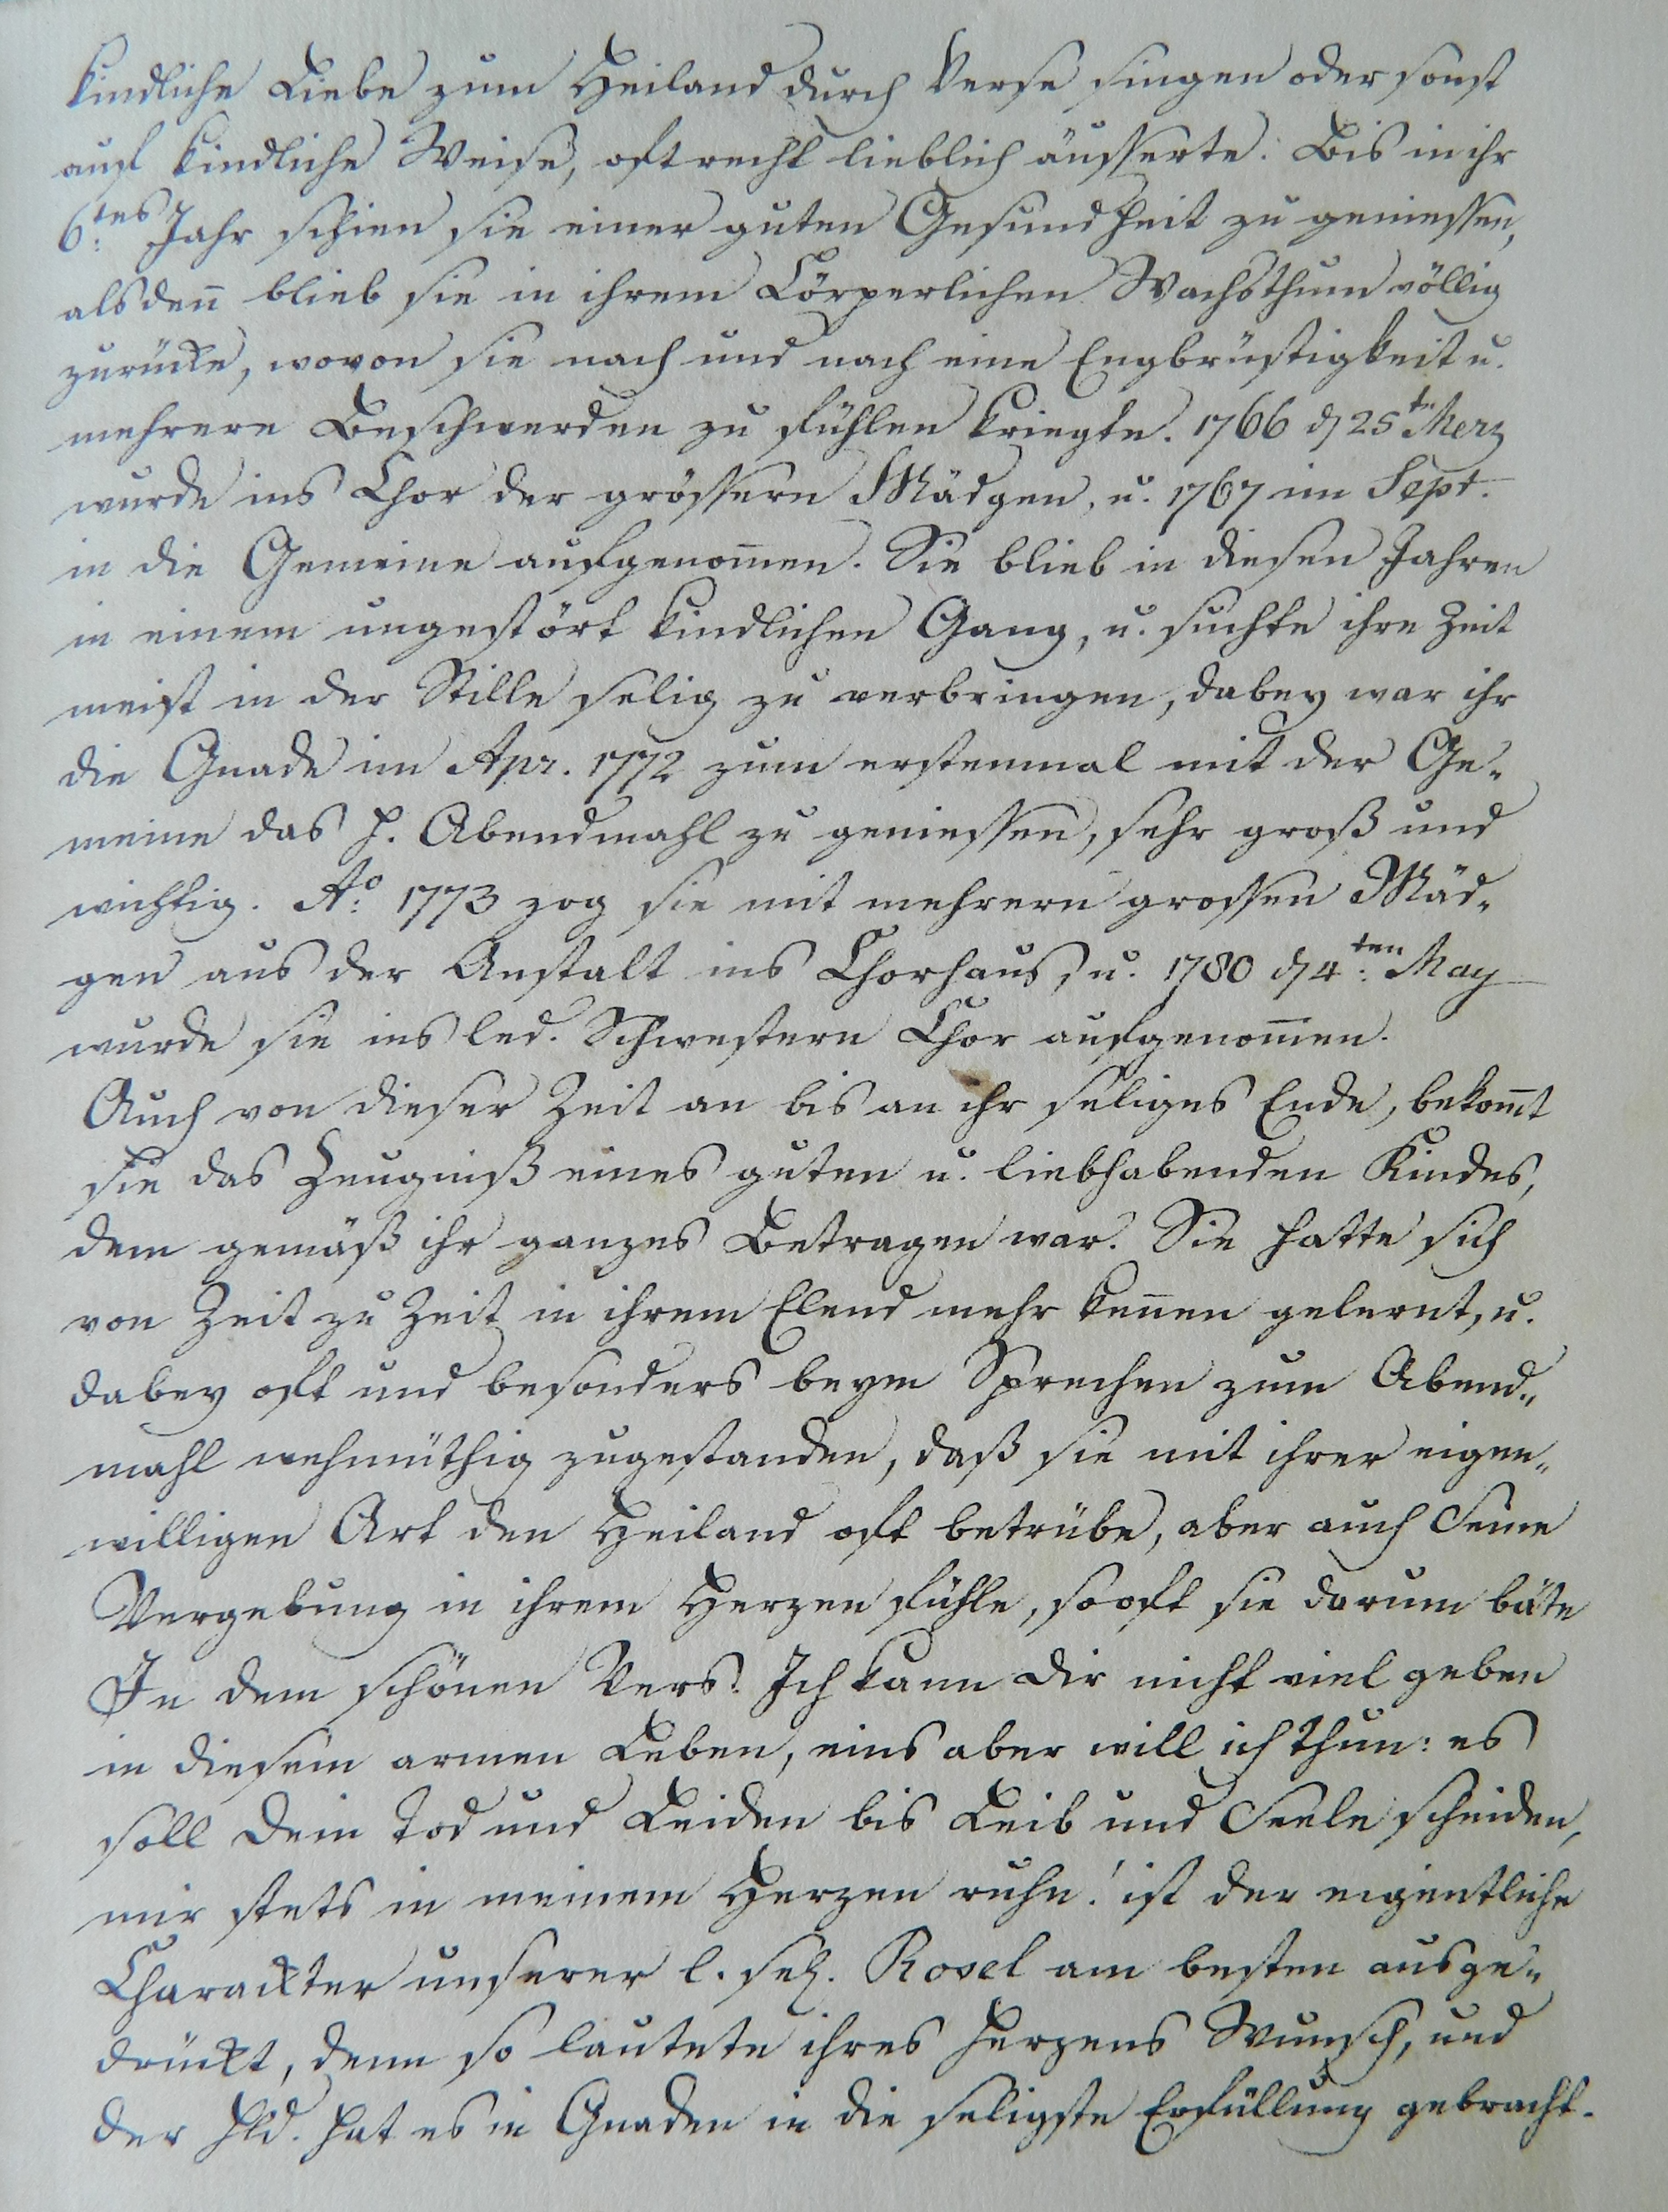 kindliche Liebe zum Heiland durch Verse singen oder sonst
auf kindliche Weise, oft recht lieblich äusserte. Bis in ihr
6tes: Jahr schien sie einer guten Gesundheit zu geniessen,
alsden̄ blieb sie in ihrem Cörperlichen Wachsthum völlig
zurücke, wovon sie nach und nach eine Engbrüstigkeit u.
mehrere Beschwerden zu fühlen kriegte. 1766 d 25tn Merz
wurde ins Chor der grössern Mädgen, u. 1767 im Sept.
in die Gemeine aufgenom̄en. Sie blieb in diesen Jahren
in einem ungestört kindlichen Gang, u. suchte ihre Zeit
meist in der Stille selig zu verbringen, dabey war ihr
die Gnade im Apr. 1772 zum erstenmal mit der Ge-
meine das h. Abendmahl zu geniessen, sehr groß und
wichtig. Ao: 1773 zog sie mit mehrern grossen Mäd-
gen aus der Anstalt ins Chorhaus, u. 1780 d 4ten: May
wurde sie ins led. Schwestern Chor aufgenom̄en.
Auch von dieser Zeit an bis an ihr seliges Ende, bekom̄t
sie das Zeugniß eines guten u. liebhabenden Kindes,
dem gemäß ihr ganzes Betragen war. Sie hatte sich
von Zeit zu Zeit in ihrem Elend mehr ken̄en gelernt, u.
dabey oft und besonders beym Sprechen zum Abend-
mahl wehmüthig zugestanden, daß sie mit ihrer eigen-
willigen Art den Heiland oft betrübe, aber auch Seine
Vergebung in ihrem Herzen fühle, so oft sie darum bäte
In dem schönen Vers: Ich kann dir nicht viel geben
in diesem armen Leben, eins aber will ich thun: es
soll dein Tod und Leiden bis Leib und Seele scheiden,
mir stets in meinem Herzen ruhn! ist der eigentliche
Charackter unserer l. sel. Rosel am besten ausge-
drückt, denn so lautete ihres Herzens Wunsch, und
der Hld. hat es in Gnaden in die seligste Erfüllung gebracht.